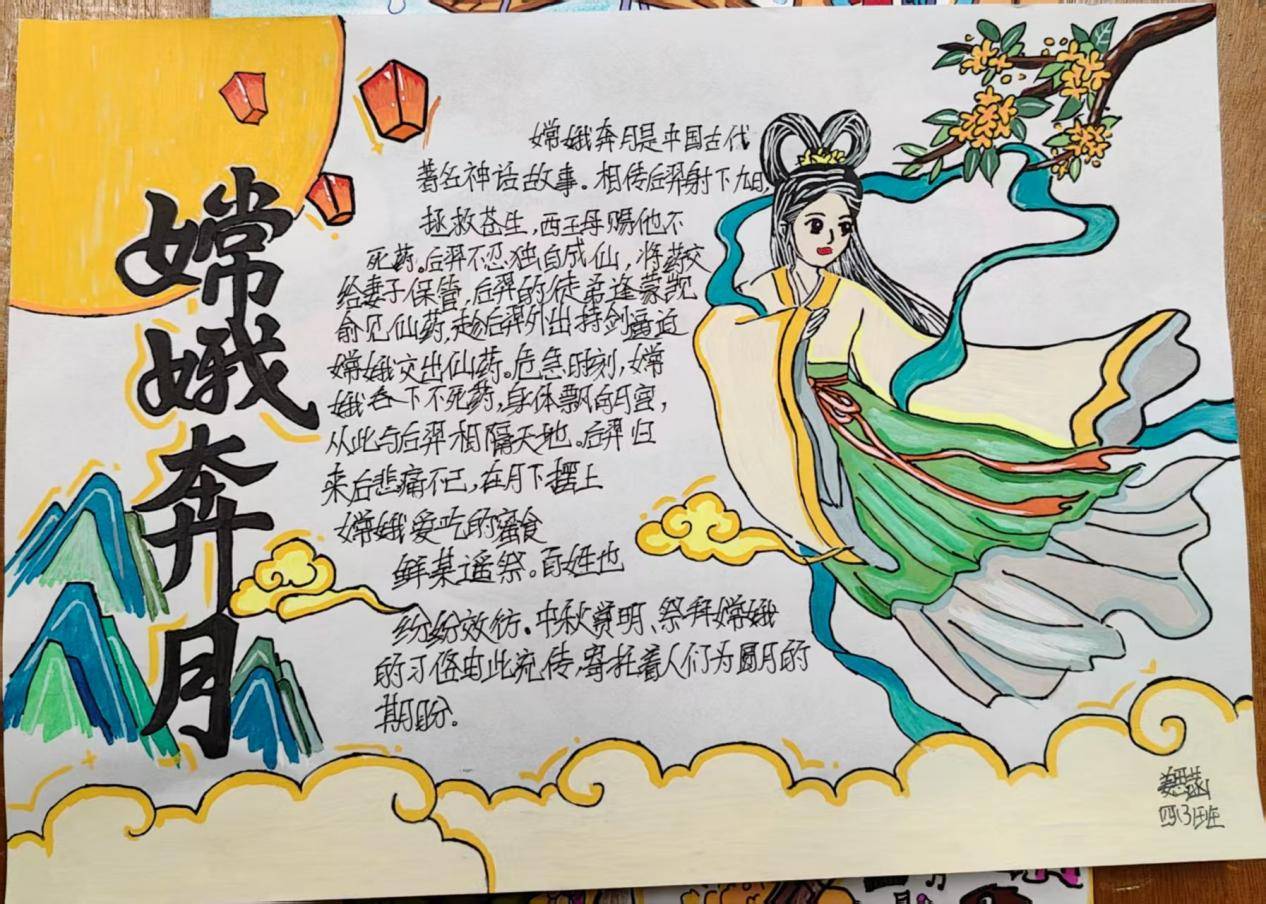 嫦娥奔月
嫦娥奔月是中国古代
著名神话故事。相传后羿射下九日,
拯救苍生,西王母赐他不
死药。后羿不忍独自成仙,将药交
给妻子保管,后羿的徒弟逢蒙觊
俞见仙药,趁后羿外出持剑逼迫
嫦娥交出仙药。危急时刻,嫦
娥吞下不死药,身体飘向月宫,
从此与后羿相隔天地。后羿归
来后悲痛不已,在月下摆上
嫦娥爱吃的蜜食
鲜果遥祭。百姓也
纷纷效仿。中秋赏明、祭拜嫦娥
的习俗由此流传,寄托着人们为圆月的
期盼。
四3班